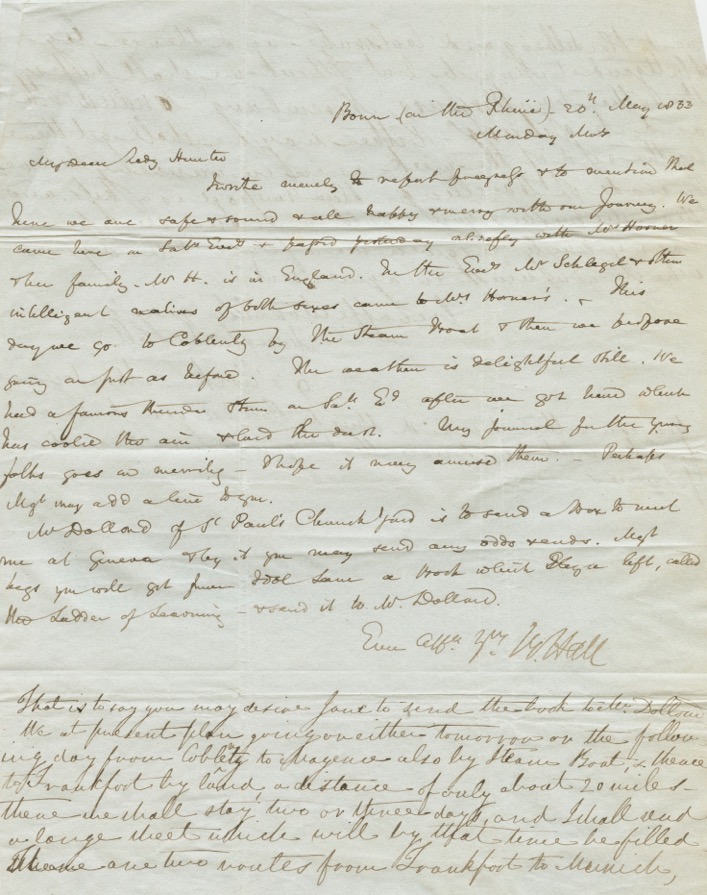 Bonn (on the Rhine) - 20th May 1833
Monday Morn
My dear Lady Hunter
I write merely to report progress & to mention that
here we are safe & sound & all happy & merry with our Journey. We
came here on Saty Eveng & passed yesterday chiefly with Mrs Horner
& her family. Mr H. is in England. In the Eveng Mr Schlegel & other
intelligent natives of both sexes came to Mrs Horner's. & This
day we go to Coblentz by the Steam Boat & then we propose
going on just as before. The weather is delightful still. We
had a famous thunder Storm on Saty Eg after we got here which
has cooled the air & laid the dust. My journal for the young
folks goes on merrily - I hope it may amuse them. - Perhaps
Mgt may add a line to ym.
Mr Dollond of St Paul's Church Yard is to send a Box to meet
me at Geneva & by it you may send any odds & ends. Mgt
begs you will get from Jane a book which left, called
the Ladder of Learning - & send it to Mr Dollond.
Ever affy yrs B. Hall
That is to say you may desire Jane to send the book to Mr. Dollond
We at present plan going on either tomorrow or the follow-
ing day from Coblentz to Mayence also by Steam Boat, & thence
to Frankfort by land, a distance of only about 20 miles-
there we shall stay two or three days, and I shall send
a large sheet which will by that time be filled
There are two routes from Frankfort to Munich,